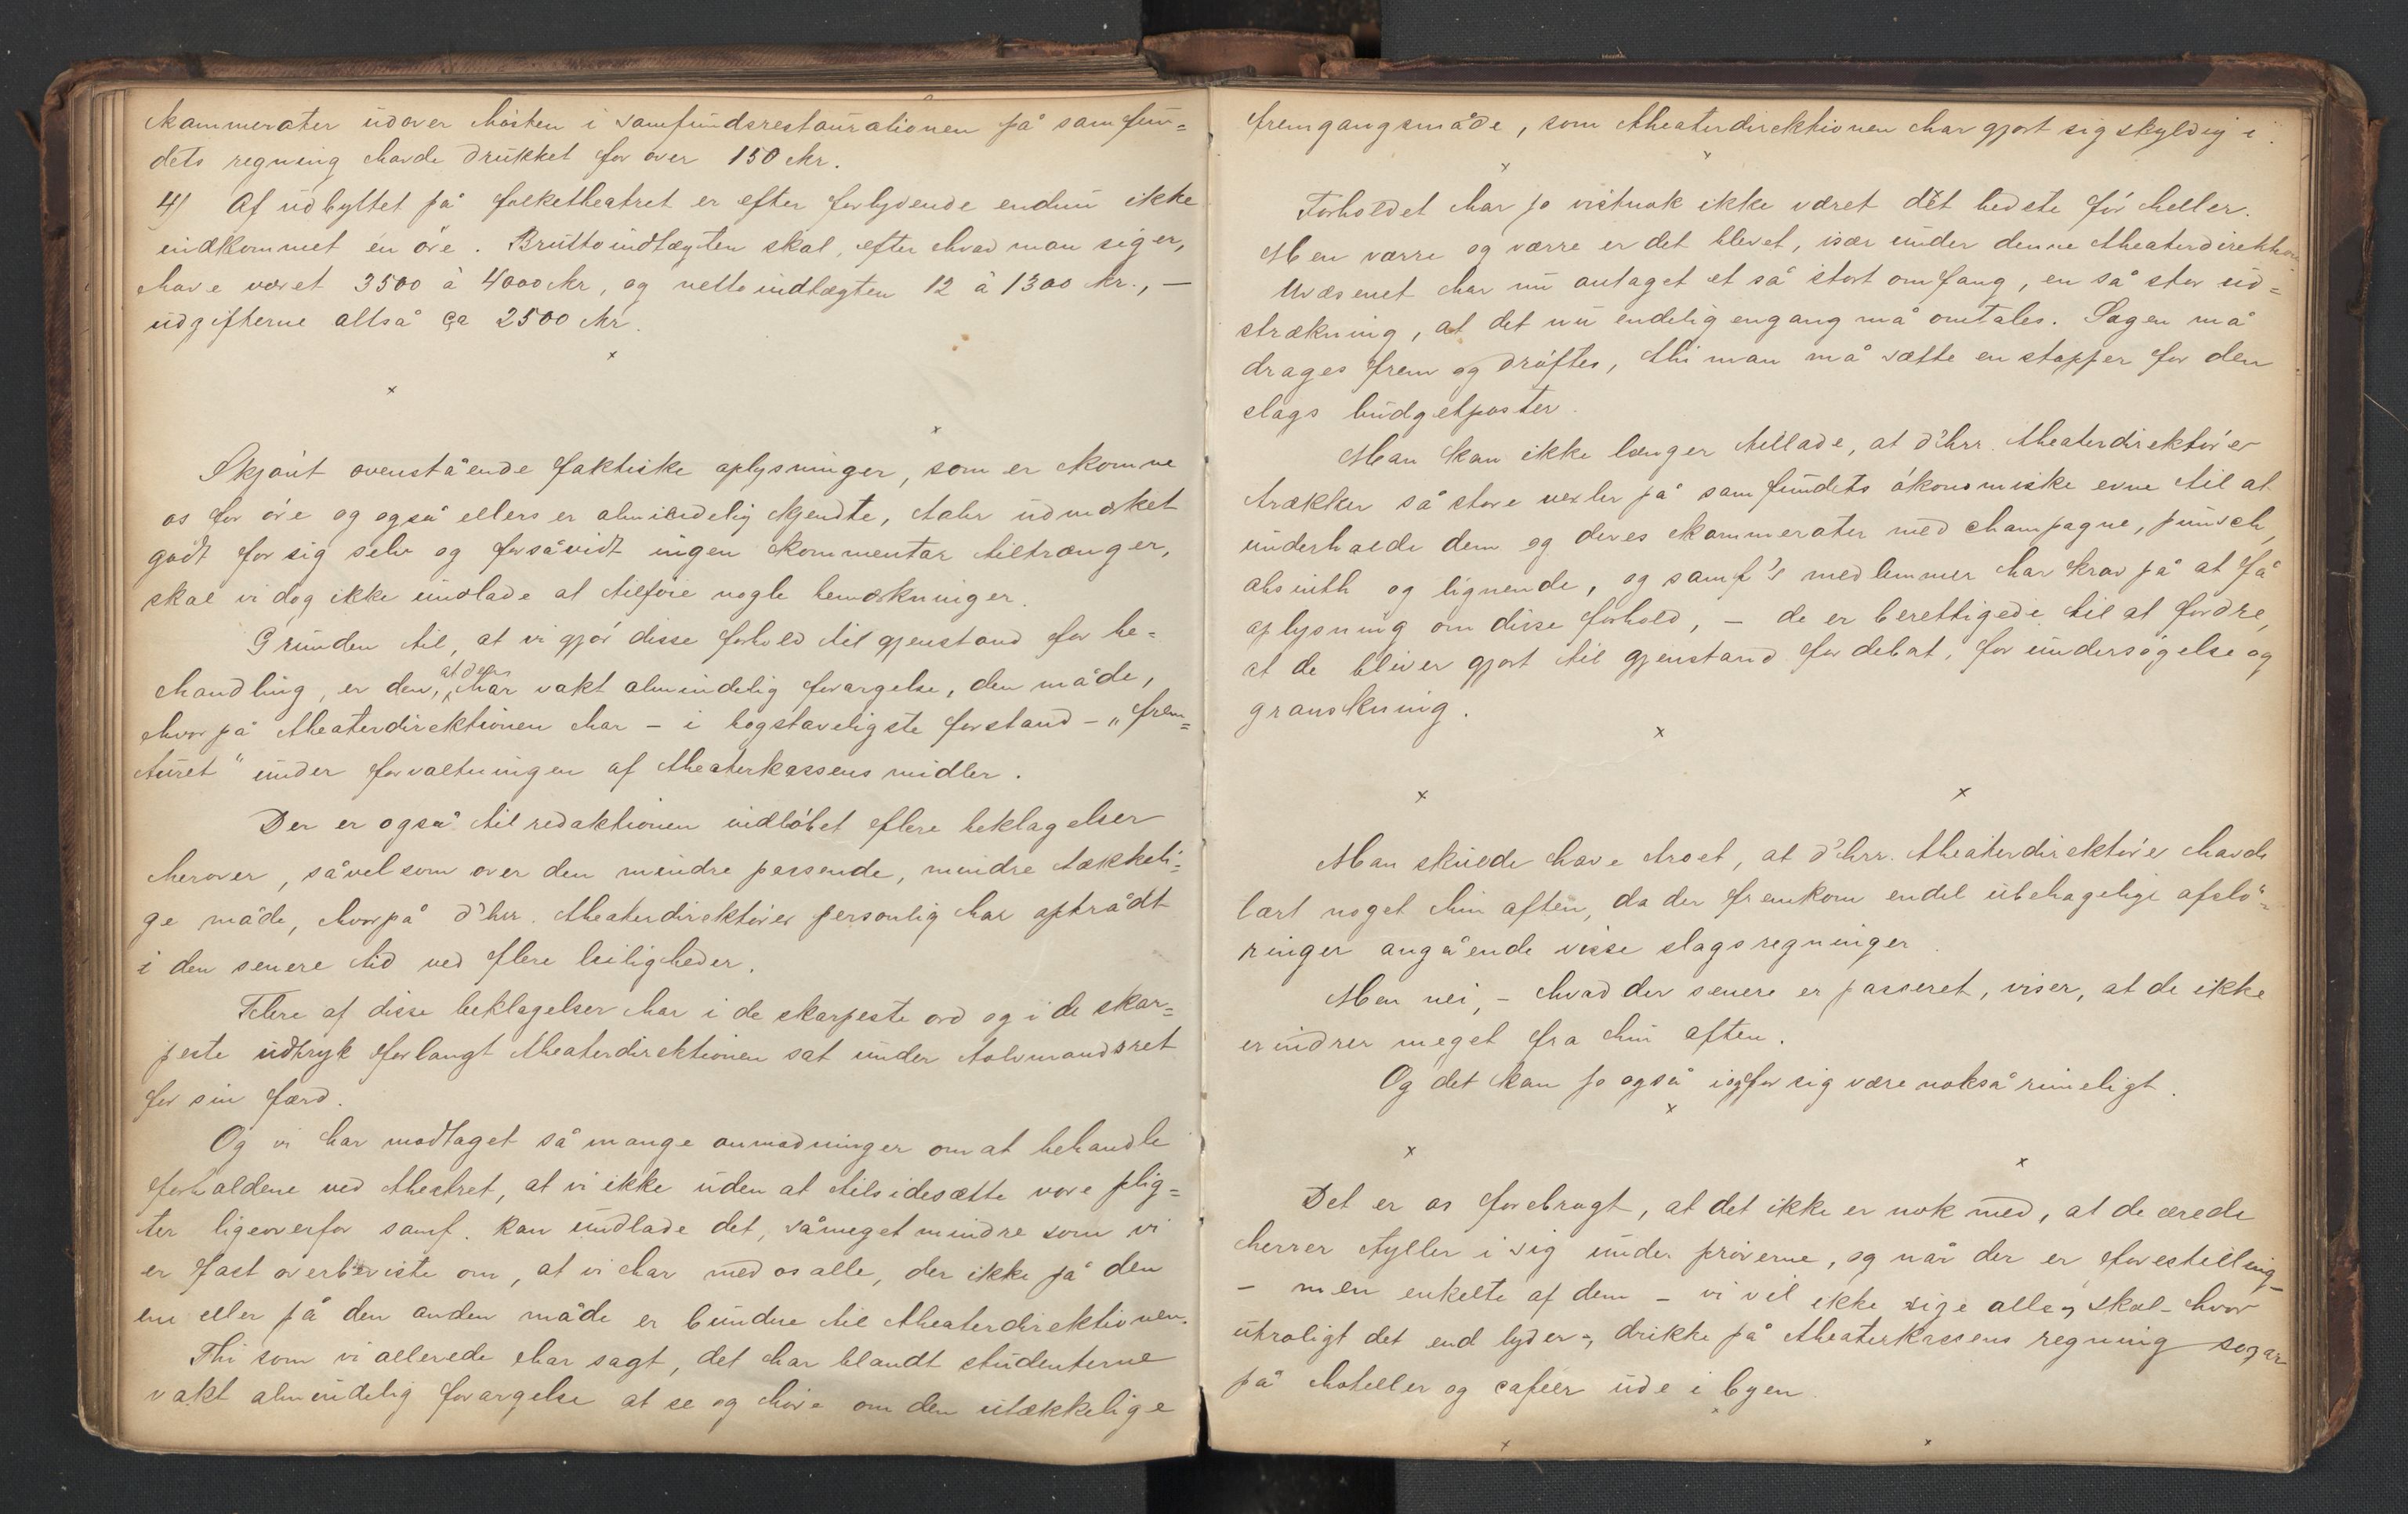 kammerater udover hösten i samfundsrestaurationen på samfun=
dets regning havde drukket for over 150 kr.
4) Af udbyttet på folketheatret er efter forlydende endnu ikke
indkommet en öre. Bruttoindtægten skal, efter hvad man siger,
have været 3500 à 4000 kr, og nettoindtægten 12 à 1300 kr., —
udgifterne altså ca 2500 kr.
x
x
x
Skjönt ovenstående faktiske oplysninger, som er komne
os for öre og også ellers er almindelig kjendte, taler udmærket
godt for sig selv og forsåvidt ingen kommentar tiltrænger,
skal vi dog ikke undlade at tilföie nogle bemærkninger.
Grunden til, at vi gjör disse forhold til gjenstand for be=
handling, er den, at den har vakt almindelig forargelse, den måde,
hvorpå theaterdirektionen har – i bogstaveligste forstand – „frem=
turet“ under forvaltningen af theaterkassens midler.
Der er også til redaktionen indlöbet flere beklagelser
herover, såvel som over den mindre passende, mindre tækkeli=
ge måde, hvorpå d'hrr. theaterdirektörer personlig har optrådt
i den senere tid ved flere leiligheder.
Flere af disse beklagelser har i de skarpeste ord og i de skar=
peste udtryk forlangt theaterdirektionen sat under tolvmandsret
for sin færd.
Og vi har modtaget så mange anmodninger om at behandle
forholdene ved theatret, at vi ikke uden at tilsidesætte vore plig=
ter ligeoverfor samf. kan undlade det, såmeget mindre som vi
er fast overbeviste om, at vi har med os alle, der ikke på den
ene eller på den anden måde er bundne til theaterdirektionen.
Thi som vi allerede har sagt, det har blandt studenterne
vakt almindelig forargelse at se og höre om den utækkelige
fremgangsmåde, som theaterdirektionen har gjort sig skyldig i.
x x
x
Forholdet har jo vistnok ikke været det bedste för heller.
Men værre og værre er det blevet, især under denne theaterdirektion.
Uvæsenet har nu antaget et så stort omfang, en så stor ud=
strækning, at det nu endelig engang må omtales. Sagen må
drages frem og dröftes, thi man må sætte en stopper for den
slags budgetposter.
Man kan ikke længer tillade, at d'hrr. theaterdirektörer
trækker så store vexler på samfundets ökonomiske evne til at
underholde dem og deres kammerater med champagne, punsch,
absinth og lignende, og samf's medlemmer har krav på at få
oplysning om disse forhold, – de er berettigede til at fordre,
at de bliver gjort til gjenstand for debat, for undersögelse og
granskning.
x
x x
Man skulde have troet, at d'hrr. theaterdirektörer havde
lært noget hin aften, da der fremkom endel ubehagelige afslö=
ringer angående visse slags regninger.
Men nei, – hvad der senere er passeret, viser, at de ikke
erindrer meget fra hin aften.
Og det kan jo også i og for sig være nokså rimeligt.
x
x
x
Det er os forebragt, at det ikke er nok med, at de ærede
herrer tyller i sig under pröverne, og når der er forestilling
– men enkelte af dem – vi vil ikke sige alle, skal – hvor
utroligt det end lyder –, drikke på theaterkassens regning sogar
på hoteller og caféer ude i byen.
x
x x